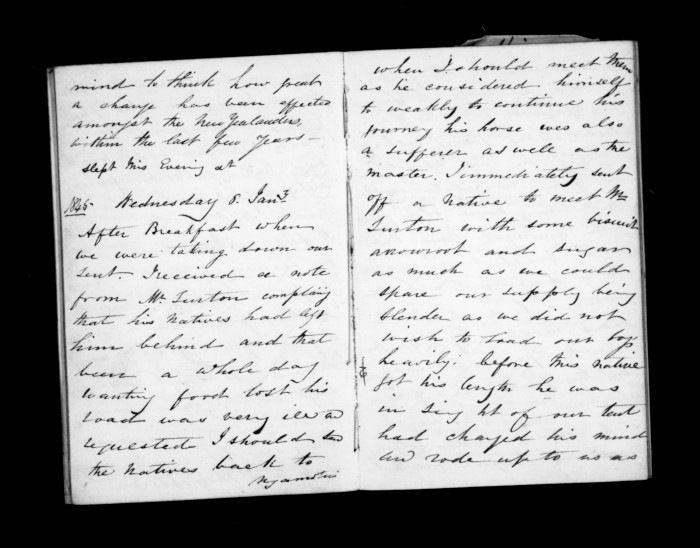 mind to think how great
a change has been effected
amongst the New Zealanders,
within the last few years—
slept this Evening at
1845 Wednesday 8. Jany.
After Breakfast when
we were taking down our
tent. I received a note
from Mr Turton complaing
that his natives had left
him behind and that
been a whole day
wanting food lost his
road was very ill &
requested I should
the Natives back to
when I should meet them
as he considered himself
to weakly to continue his
journey his horse was also
a sufferer as well as the
master. I immediately sent
off a Native to meet Mr
Turton with some biscuit
arowroot and sugar
as much as we could
spare our supply being
slender as we did not
wish to load our boys
heavily; before this native
got his length he was
in sight of our tent
had changed his mind
and rode up to us as